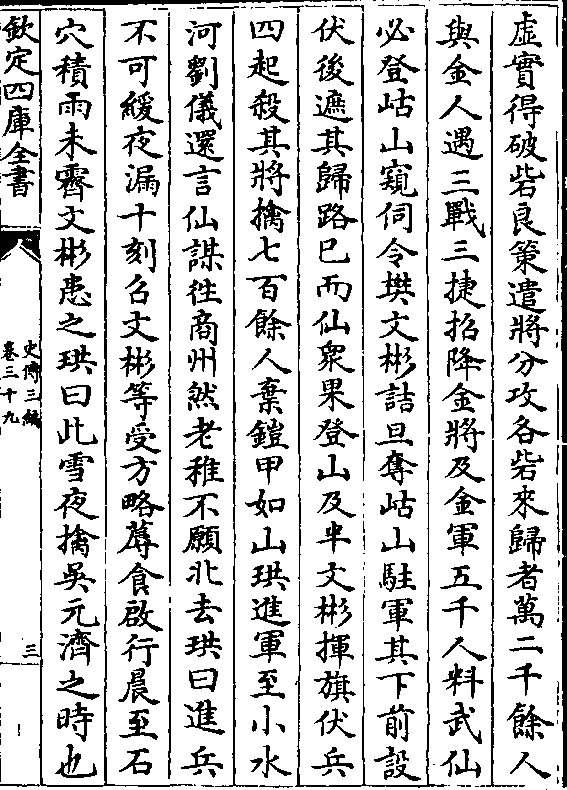 虛實得破砦良策遣將分攻各砦來歸者萬二千餘人
與金人遇三戰三捷招降金將及金軍五千人料武仙
必登岵山窺伺令樊文彬詰旦奪岵山駐軍其下前設
伏後遮其歸路已而仙衆果登山及半文彬揮旗伏兵
四起殺其將擒七百餘人棄鎧甲如山珙進軍至小水
河劉儀還言仙謀徃商州然老稚不願北去珙曰進兵
不可緩夜漏十刻召文彬等受方略蓐食啟行晨至石
穴積雨未霽文彬患之珙曰此雪夜擒吳元濟之時也
欽定四庫全書
史傳三編
卷三十九
三